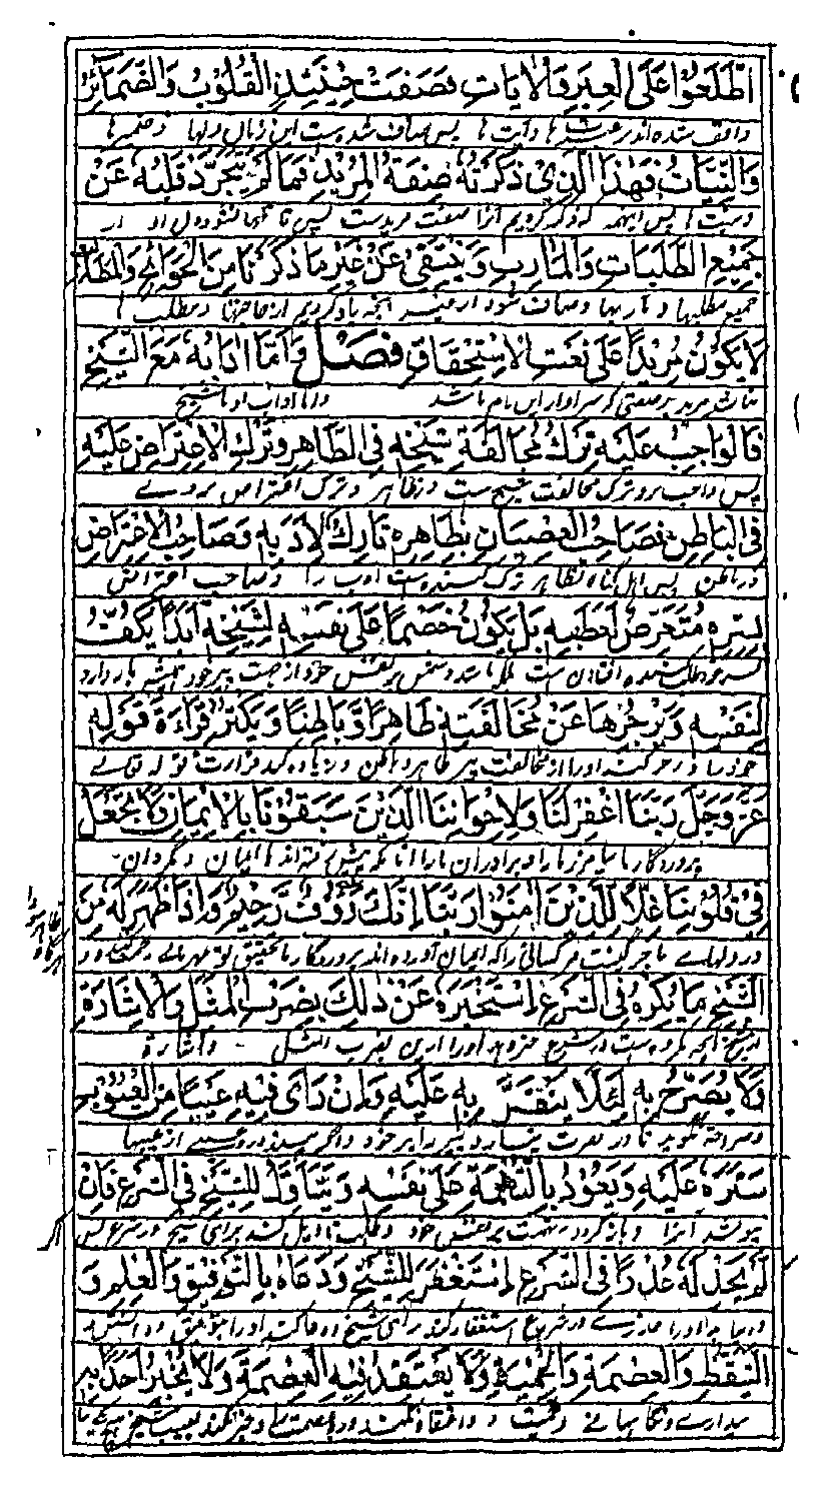 اطَّلَعُوا عَلَى الْعِبَرِ وَالْآيَاتِ فَصَفَتْ حِينَئِذٍ الْقُلُوبُ وَالضَّمَائِرُ
واقف شده اند بر عبرت ها و آیت ها پس صاف شده است این زمان دلها و ضمیرها
وَالنِّيَّاتُ فَهٰذَا الَّذِي ذَكَرْتُهُ صِفَةُ الْمُرِيدِ فَمَا لَمْ يَتَجَرَّدْ قَلْبُهُ عَنْ
و نیت ها پس اینهمه که ذکر کردیم آنرا صفت مرید ست پس تا تنها نشود دل او از
جَمِيعِ الطَّلَبَاتِ وَالْمَآرِبِ وَيَنْتَقِي عَنْ غَيْرِ مَا ذَكَرْنَا مِنَ الْحَوَائِجِ وَالْمَطَالِبِ
جمیع مطلبها و ماربها و صاف شود از غیر آنچه یاد کردیم از حاجتها و مطلب ها
لَا يَكُونُ مُرِيدًا عَلَى نَعْتِ الْاِسْتِحْقَاقِ فَصْلٌ وَأَمَّا آدَابُهُ مَعَ الشَّيْخِ
نباشد مرید بر صفتی که سزاوار این نام باشد واما آداب او با شیخ
فَالْوَاجِبُ عَلَيْهِ تَرْكُ مُخَالَفَةِ شَيْخِهِ فِي الظَّاهِرِ وَتَرْكُ الْاِعْتِرَاضِ عَلَيْهِ
پس واجب برو ترک مخالفت شیخ ست در ظاهر و ترک اعتراض بر وے
فِي الْبَاطِنِ فَصَاحِبُ الْعِصْيَانِ بِظَاهِرِهِ تَارِكٌ لِأَدَبِهِ وَصَاحِبُ الْاِعْتِرَاضِ
در باطن پس اهل گناه بظاهر ترک کننده ست ادب را و صاحب اعتراض
بِسِرِّهِ مُتَعَرِّضٌ لِعَطَبِهِ بَلْ يَكُونُ خَصْمًا عَلَى نَفْسِهِ لِشَيْخِهِ أَبَدًا يَكُفُّ
بسر خود هلاک افتادن ست بلکه باشد دشمن بر نفس خود از جهت پیر خود همیشه باز دارد
لِنَفْسِهِ وَيَزْجُرُهَا عَنْ مُخَالَفَتِهِ ظَاهِرًا وَبَاطِنًا وَيُكْثِرُ قِرَاءَةَ قَوْلِهِ
خود را و زجر کند او را از مخالفت پیر ظاهر و باطن و زیاده کند قرارت قوله تعالے
عَزَّ وَجَلَّ رَبَّنَا اغْفِرْ لَنَا وَلِإِخْوَانِنَا الَّذِينَ سَبَقُونَا بِالْإِيمَانِ وَلَا تَجْعَلْ
پروردگار ما بیامرز ما را و برادران ما را آنانکه پیش رفته اند با ایمان و مگردان
فِي قُلُوبِنَا غِلًّا لِلَّذِينَ آمَنُوا رَبَّنَا إِنَّكَ رَءُوفٌ رَحِيمٌ وَإِذَا ظَهَرَ لَهُ مِنَ
در دلهاے ما کینه مر کسانی را که ایمان آورده اند پروردگار ما بتحقیق تو مهربان
الشَّيْخِ مَا يُكْرَهُ فِي الشَّرْعِ اِسْتَخْبَرَهُ عَنْ ذٰلِكَ بِضَرْبِ الْمَثَلِ وَالْإِشَارَةِ
از شیخ آنچه مکروه ست در شرع خبر او را ازین بضرب المثل و اشارة
وَلَا يُصَرِّحُ بِهِ لِئَلَّا يَنْفُرَ بِهِ عَلَيْهِ وَإِنْ رَأَى فِيهِ عَيْبًا مِنَ الْعُيُوبِ
و صراحة نگوید تا در نفرت نیارد پیر را بر خود و اگر بیند در وے عیبے از عیبها
سَتَرَهُ عَلَيْهِ وَيَعُودُ بِالتُّهْمَةِ عَلَى نَفْسِهِ وَيَتَأَوَّلُ لِلشَّيْخِ فِي الشَّرْعِ فَإِنْ
پوشد آنرا و باز گردد بتهمت بر نفس خود و طلب تاویل کند برای شیخ در شرع پس
لَمْ يَجِدْ لَهُ عُذْرًا فِي الشَّرْعِ اِسْتَغْفَرَ لِلشَّيْخِ وَدَعَا لَهُ بِالتَّوْفِيقِ وَالْعِلْمِ وَ
او را عذرے در شرع استغفار کند برای شیخ و دعا کند او را بتوفیق و دانش و
التَّيَقُّظِ وَالْعِصْمَةِ وَالْحَمِيَّةِ وَلَا يَعْتَقِدُ فِيهِ الْعِصْمَةَ وَلَا يُخْبِرُ أَحَدًا بِهِ
بیدارے و نگاهبانے و حمیت و اعتقاد نکند در و عصمت را و خبر نکند بعیب شیخ